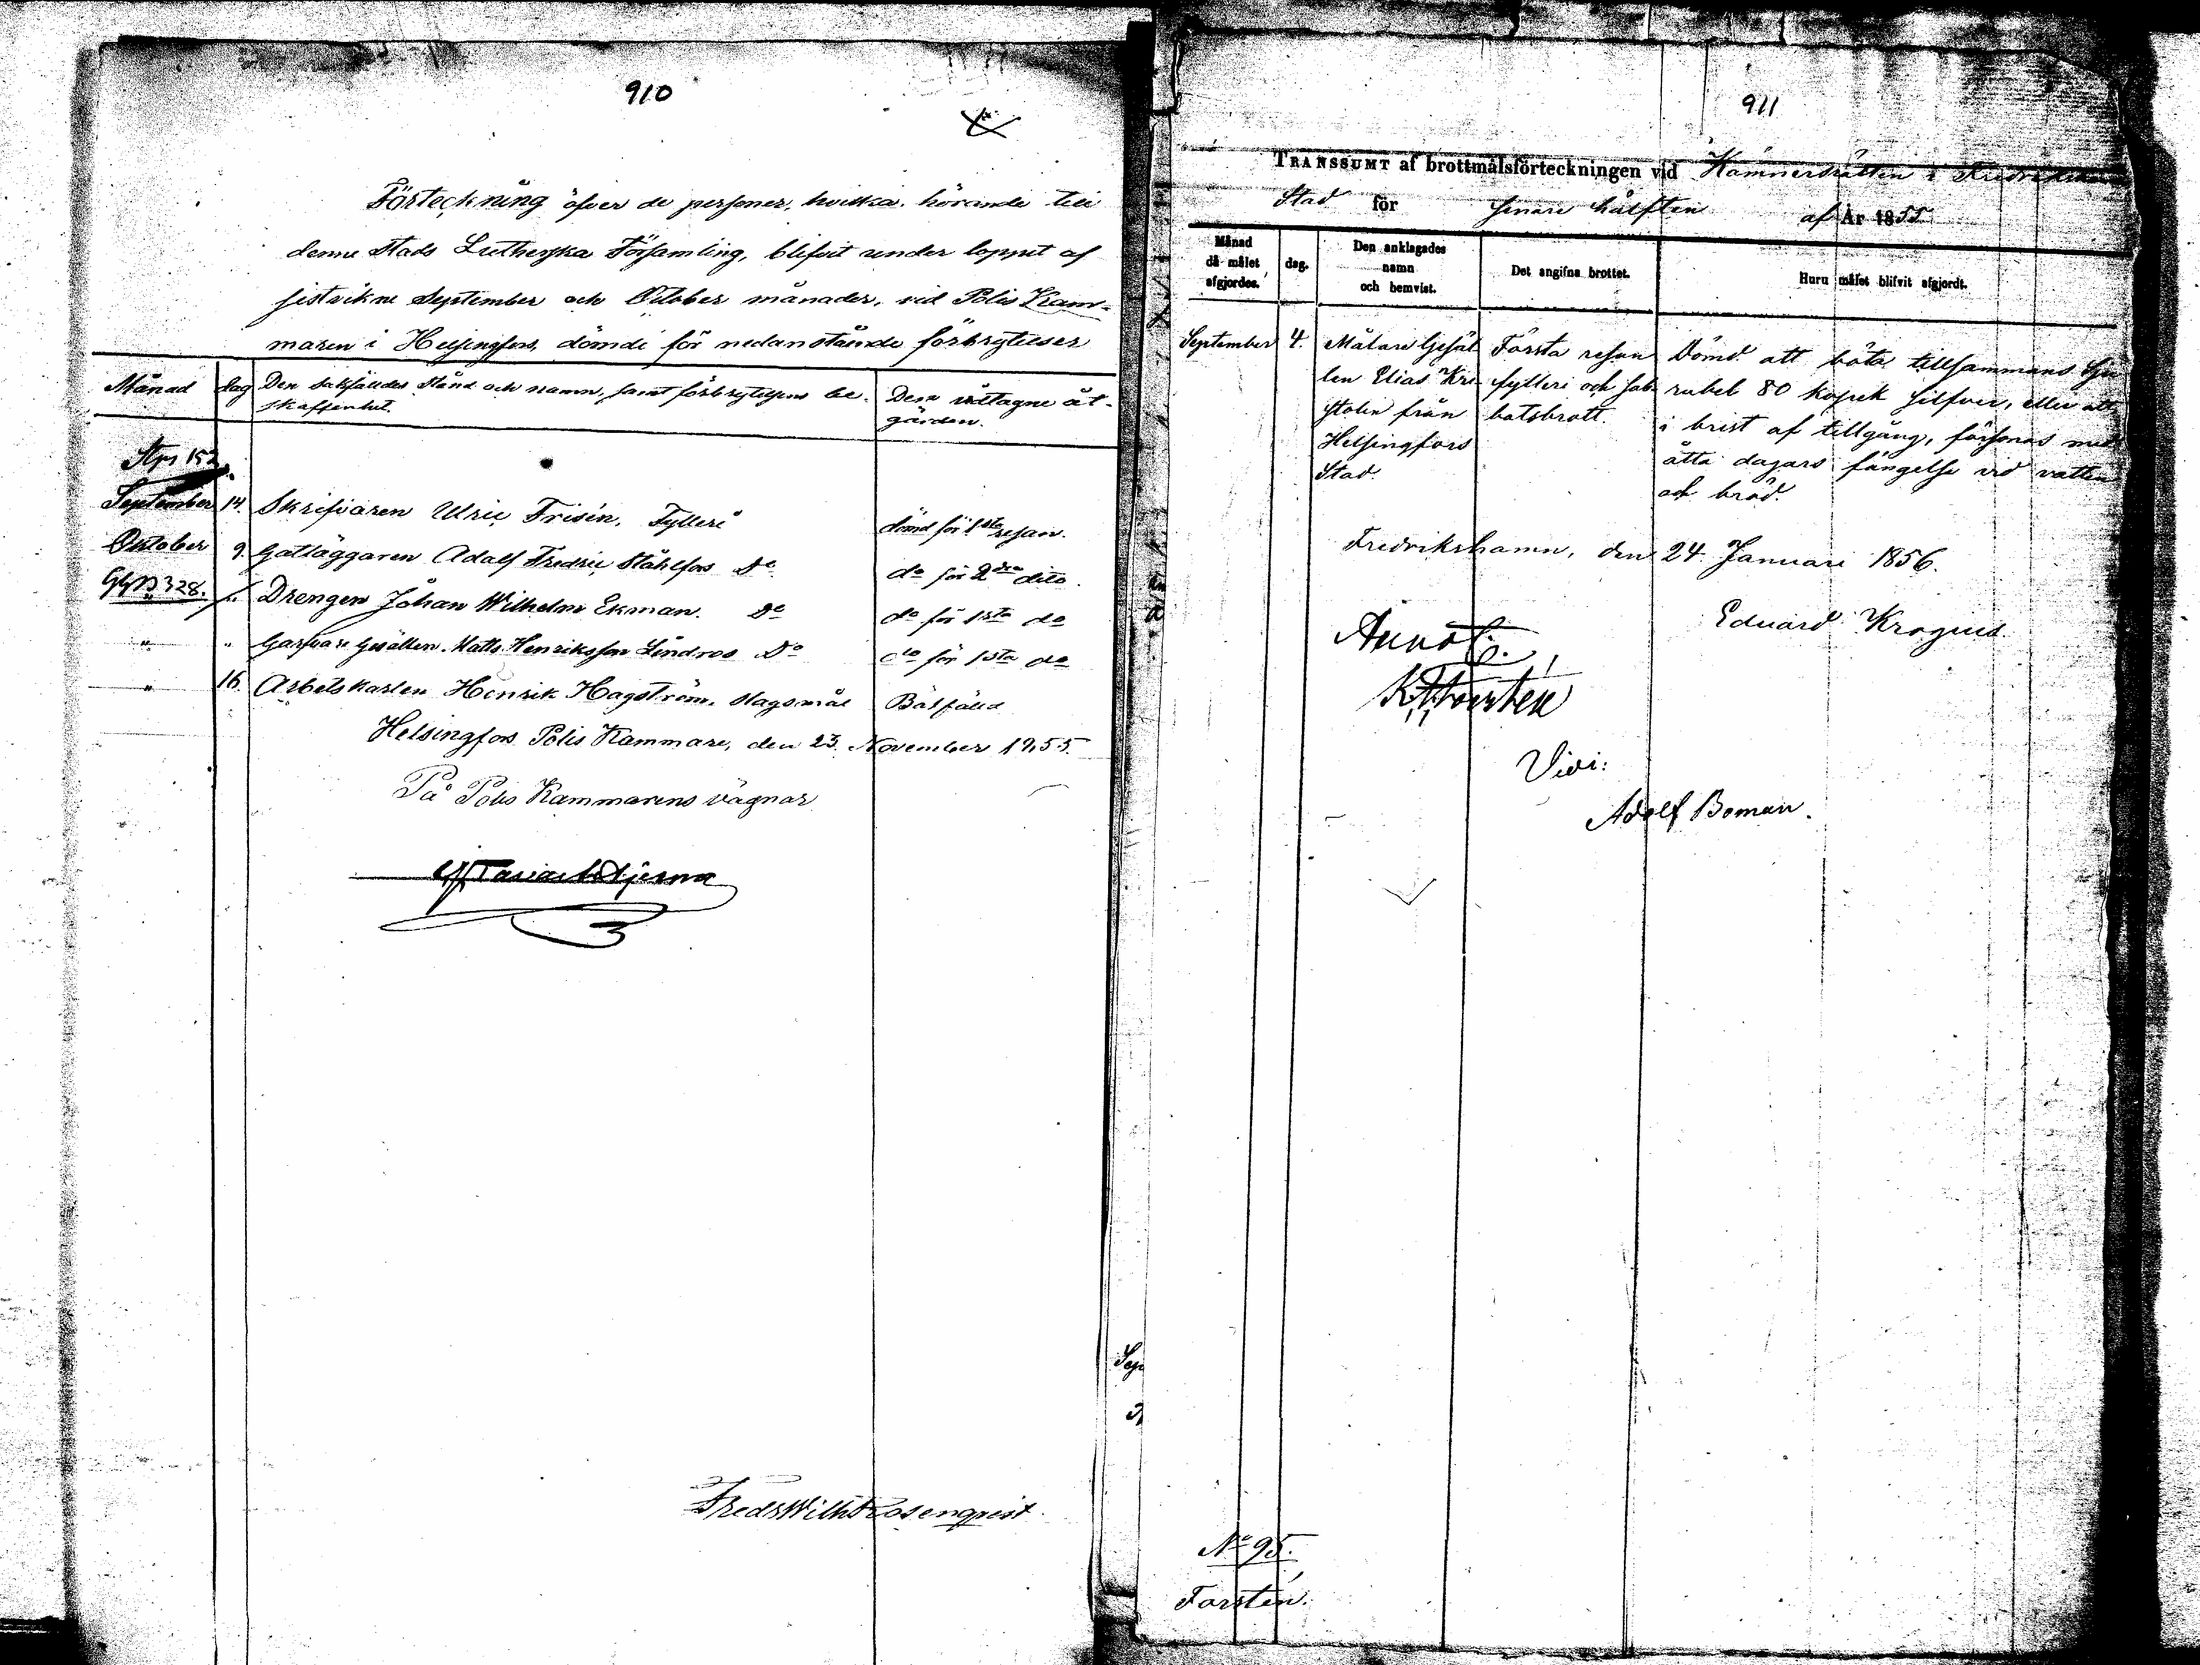 910
Förteckning öfver de personer, hvilka, hörande till
denne Stads Lutherska Församling, blifvit under loppet af
sistvikne September och October månader, vid Polis Kam-
maren i Helsingfors, dömde för nedanstående förbrytelser
Månad Dag Den sakfälldes stånd och namn, samt förbrytelsens be-
skaffenhet. Den vidtagne åt-
gärden.
September 14. Skrifvaren Ulric Frisén, Fylleri dömd för 1sta resan.
October 9. Gatläggaren Adolf Fredric Ståhlfors Do do för 2dra dito.
GGB 328. " Drengen Johan Wilhelm Ekman. Do do för 1sta do
" " Garfvare Gesällen Matts Henriksson Lindroos Do do för 1sta do
" 16. Arbetskarlen Henrik Hagström, slagsmål Båtfälld
Helsingfors Polis Kammare, den 23. November 1855.
På Polis Kammarens vägnar
Fredr Wilh Rosenqvist
911
TRANSSUMT af brottmålsförteckningen vid Kämnersrätten i Fredrikshamns
Stad för senare hälften af År 1855
Månad
då målet
afgjordes.
dag.
Den anklagades
namn
och hemvist.
Det angifna brottet.
Huru målet blifvit afgjordt.
September 4. Målare Gesäl Första resan Dömd att böta tillsammans sju
len Elias Kri fylleri och sab rubel 80 kopek silfver, eller att
stolin från batsbrott. i brist af tillgång, försonas med
Helsingfors åtta dagars fängelse vid vatten
Stad. och bröd.
Fredrikshamn, den 24 Januari 1856.
Eduard Krogius.
Annot.
Vidi:
Adolf Boman.
No 95.
Forstén.